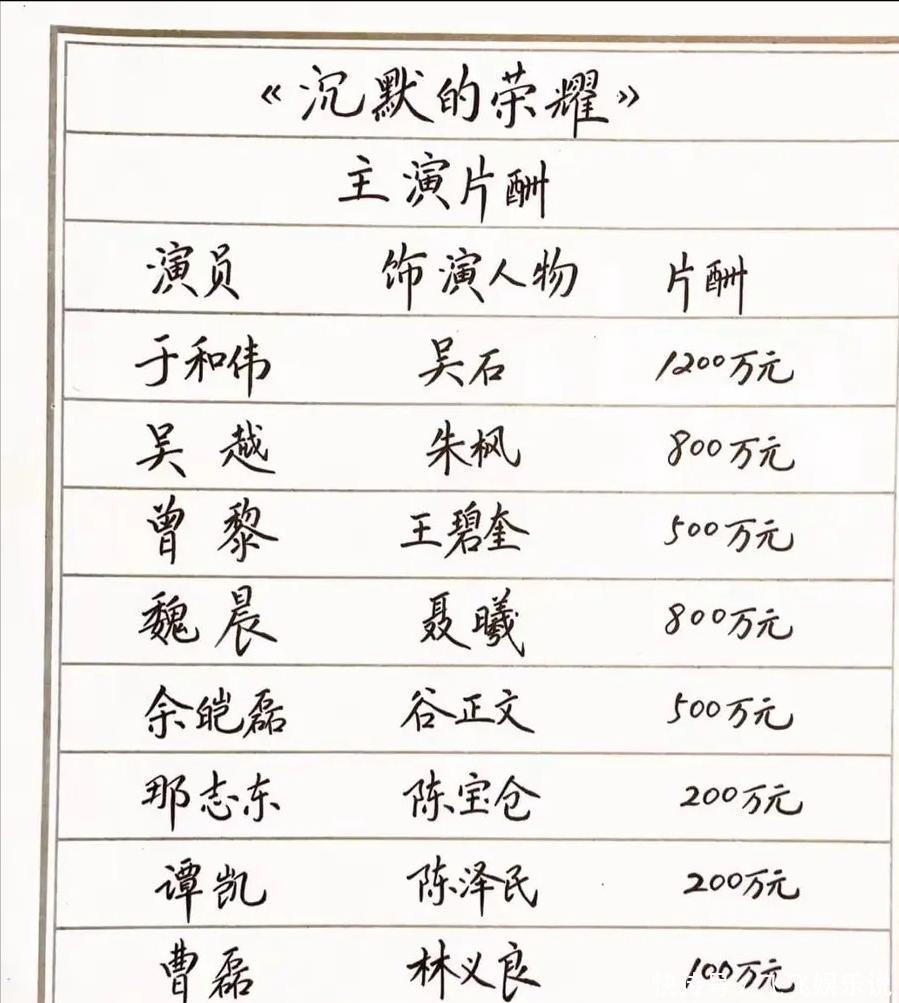 《沉默的荣耀》
主演片酬
演员 饰演人物 片酬
于和伟 吴石 1200万元
吴越 朱枫 800万元
曾黎 王碧奎 500万元
魏晨 聂曦 800万元
余皑磊 谷正文 500万元
那志东 陈宝仓 200万元
谭凯 陈泽民 200万元
曹磊 林义良 100万元